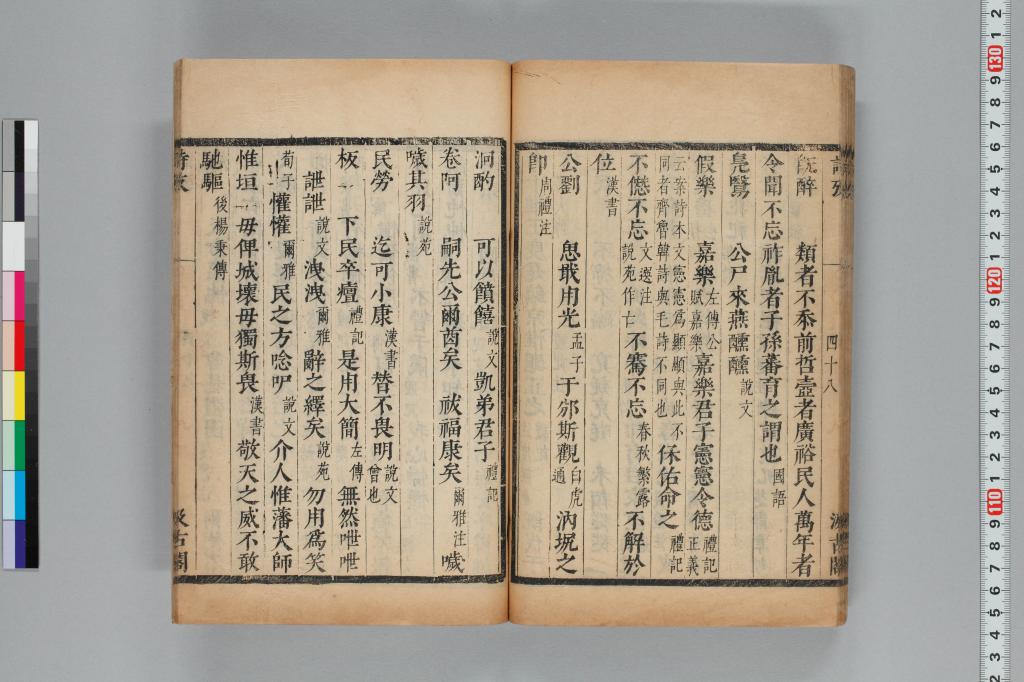 既醉 類者不忝前哲壼者廣裕民人萬年者
令聞不忘祚胤者子孫蕃育之謂也國語
鳧鷖 公尸來燕醺醺說文
假樂 嘉樂左傳公賦嘉樂嘉樂君子憲憲令德禮記正義
云案詩本文憲憲爲顯顯與此不同者齊魯韓詩與毛詩不同也 休佑命之禮記
不愆不忘文選注說苑作亡 不騫不忘春秋繁露 不解於
位漢書
公劉 思戢用光孟子 于邠斯觀白虎通 汭坭之
卽周禮注
四十八
泂酌 可以饙饎說文 凱弟君子禮記
卷阿 嗣先公爾酋矣 祓福康矣爾雅注 噦
噦其羽說苑
民勞 迄可小康漢書 朁不畏明說文曾也
板 下民卒癉禮記 是用大簡左傳 無然呭呭
詍詍說文 洩洩爾雅 辭之繹矣說苑 勿用爲笑
荀子 懽懽爾雅 民之方唸吚說文 介人惟藩大師
惟垣 毋俾城壞毋獨斯畏漢書 敬天之威不敢
馳驅後楊秉傳
詩攷
汲古閣